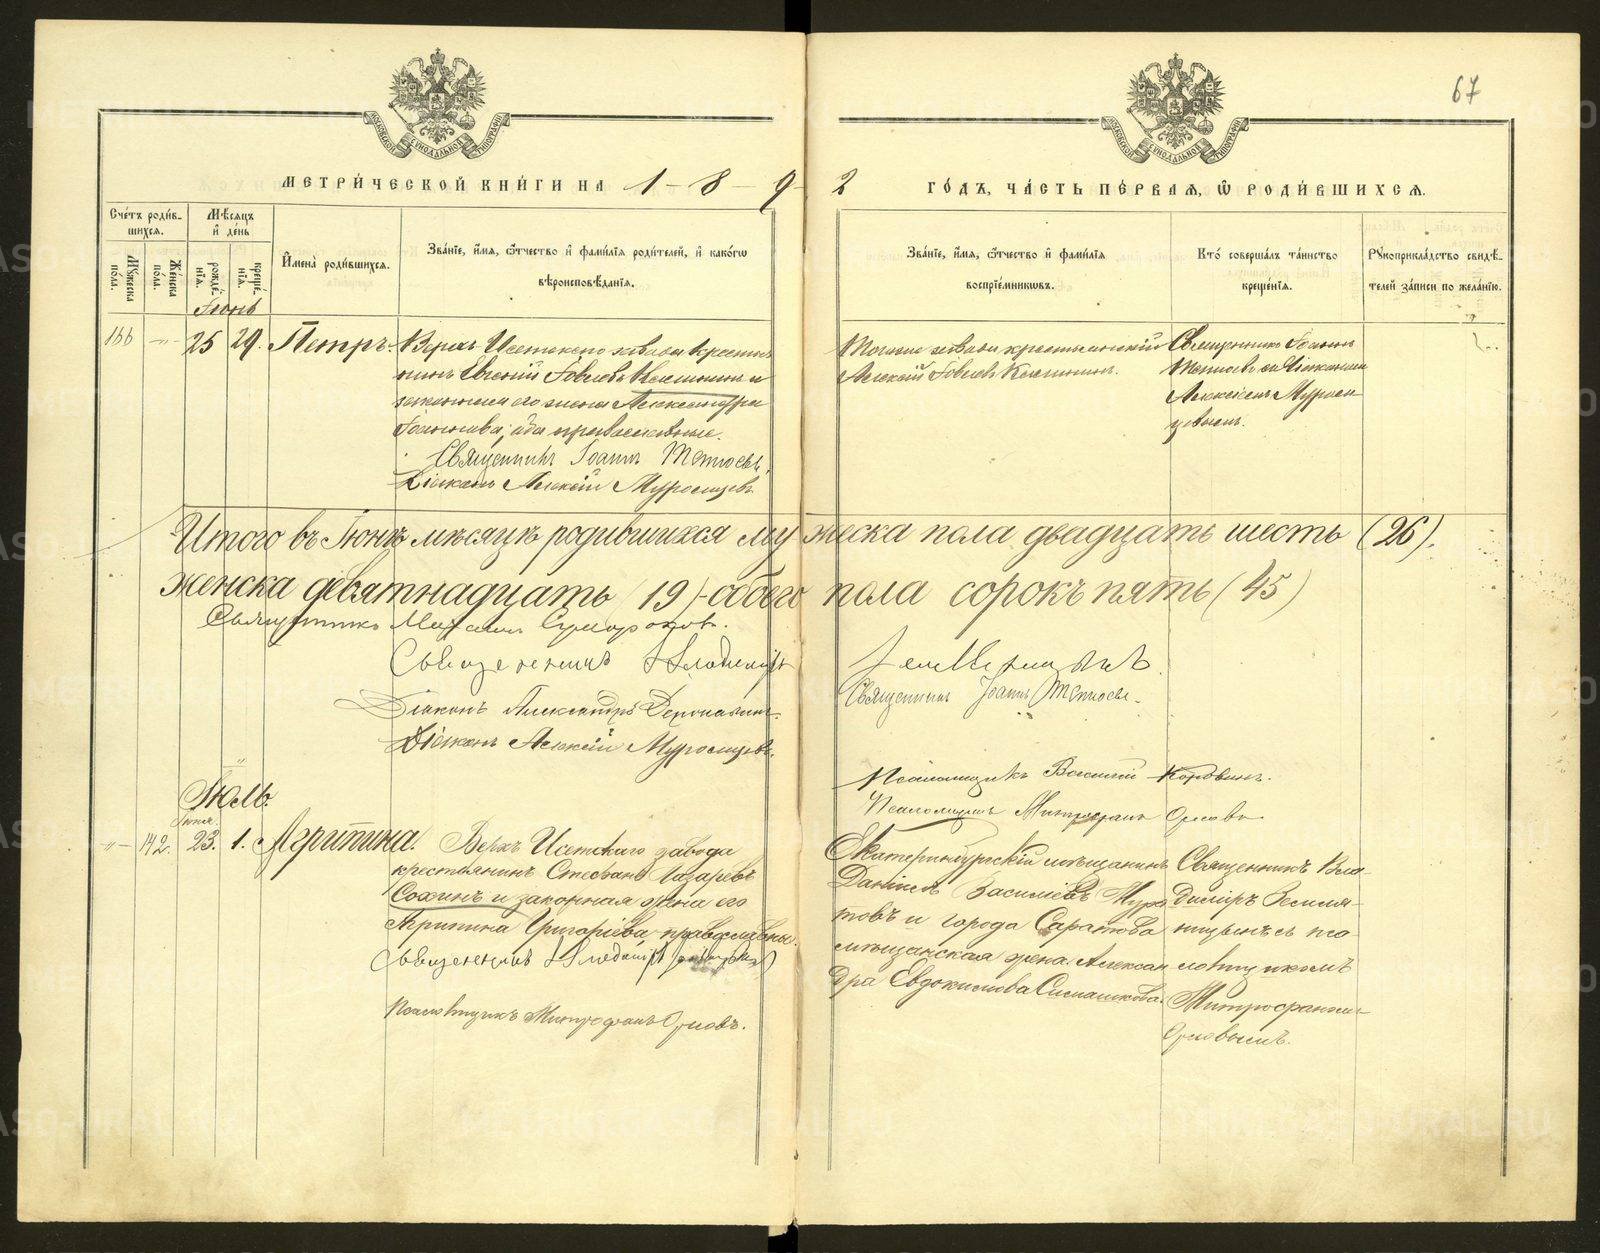 67
МОСКОВСКОЙ СѴНОДАЛЬНОЙ ТИПОГРАФІИ
МОСКОВСКОЙ СѴНОДАЛЬНОЙ ТИПОГРАФІИ
МЕТРИ́ЧЕСКОЙ КНИ́ГИ НА 1-8-9-2 ГО́ДЪ, ЧА́СТЬ ПЕ́РВАЯ, Ѡ РОДИ́ВШИХСЯ.
Сче́тъ роди́в-
шихся.
Му́жеска по́ла.
Же́нска по́ла.
Мѣ́сяцъ
и де́нь
рожде́-
нія.
креще́-
нія.
И́мена роди́вшихся.
Зва́ніе, и́мя, о́тчество и фами́лія роди́телей, и како́гѡ
вѣроисповѣ́данія.
Зва́ніе, и́мя, о́тчество и фами́лія
воспріе́мникѡвъ.
Кто́ соверша́лъ та́инство
креще́нія.
Рꙋкоприкла́дство свидѣ́-
телей за́писи по жела́нію.
Іюнь
166 -"- 25 29. Петръ.
Верхъ Исетскаго завода крестья
нинъ Евгеній Іовлевъ и
законная его жена Александра
Іоаннова, оба православные.
Священникъ Іоаннъ
Діаконъ Алексій Муромцевъ
Тогоже завода крестьянскій
Алексѣй Іовлевъ
Священникъ Іоаннъ
съ Діакономъ
Алексіемъ Муром
цевымъ.
Итого въ Іюнѣ мѣсяцѣ родившихся мужеска пола двадцать шесть (26),
женска девятнадцать (19) - обоего пола сорокъ пять (45)
Священникъ
Священникъ Владиміръ Земляницынъ.
Священникъ Іоаннъ
Діаконъ Александръ
Діаконъ Алексій Муромцевъ.
Псаломщикъ Василій Коровинъ.
Псаломщикъ Митрофанъ Орловъ.
Іюль.
Іюня
-"- 142. 23. 1. Агриппина.
Верхъ Исетскаго завода
крестьянинъ Стефанъ Лазаревъ
Сохинъ и законная жена его
Агрипина Григоріева, православны.
Священникъ Владиміръ Земляницынъ
Псаломщикъ Митрофанъ Орловъ.
Екатеринбургскій мѣщанинъ
Даніилъ Василіевъ Мура
товъ и города Саратова
мѣщанская жена Александ
дра Евдокимова Симашкова.
Священникъ Вла-
диміръ Земля-
ницынъ съ пса-
ломщикомъ
Митрофаномъ
Орловымъ.
METRIKI.GASO-URAL.RU